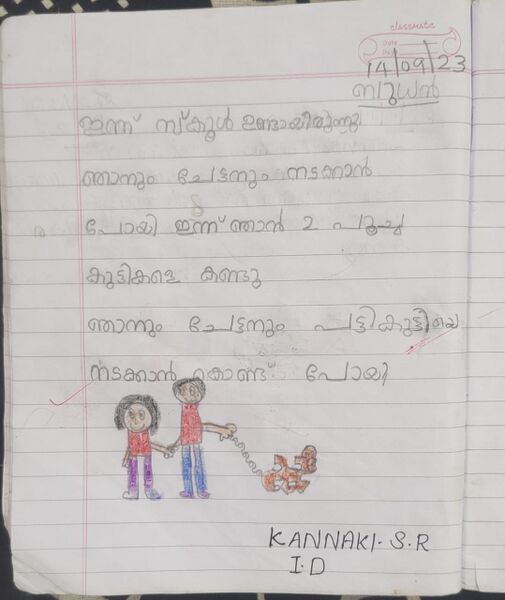 classmate
Date
Page
14/09/23
ബുധൻ
ഇന്ന് സ്കൂൾ ഉണ്ടായിരുന്നു
ഞാനും ചേട്ടനും നടക്കാൻ
പോയി ഇന്ന് ഞാൻ 2 പൂച്ച
കുട്ടികളെ കണ്ടു
ഞാനും ചേട്ടനും പട്ടികുട്ടിയെ
നടക്കാൻ കൊണ്ട് പോയി
KANNAKI. S. R
I. D